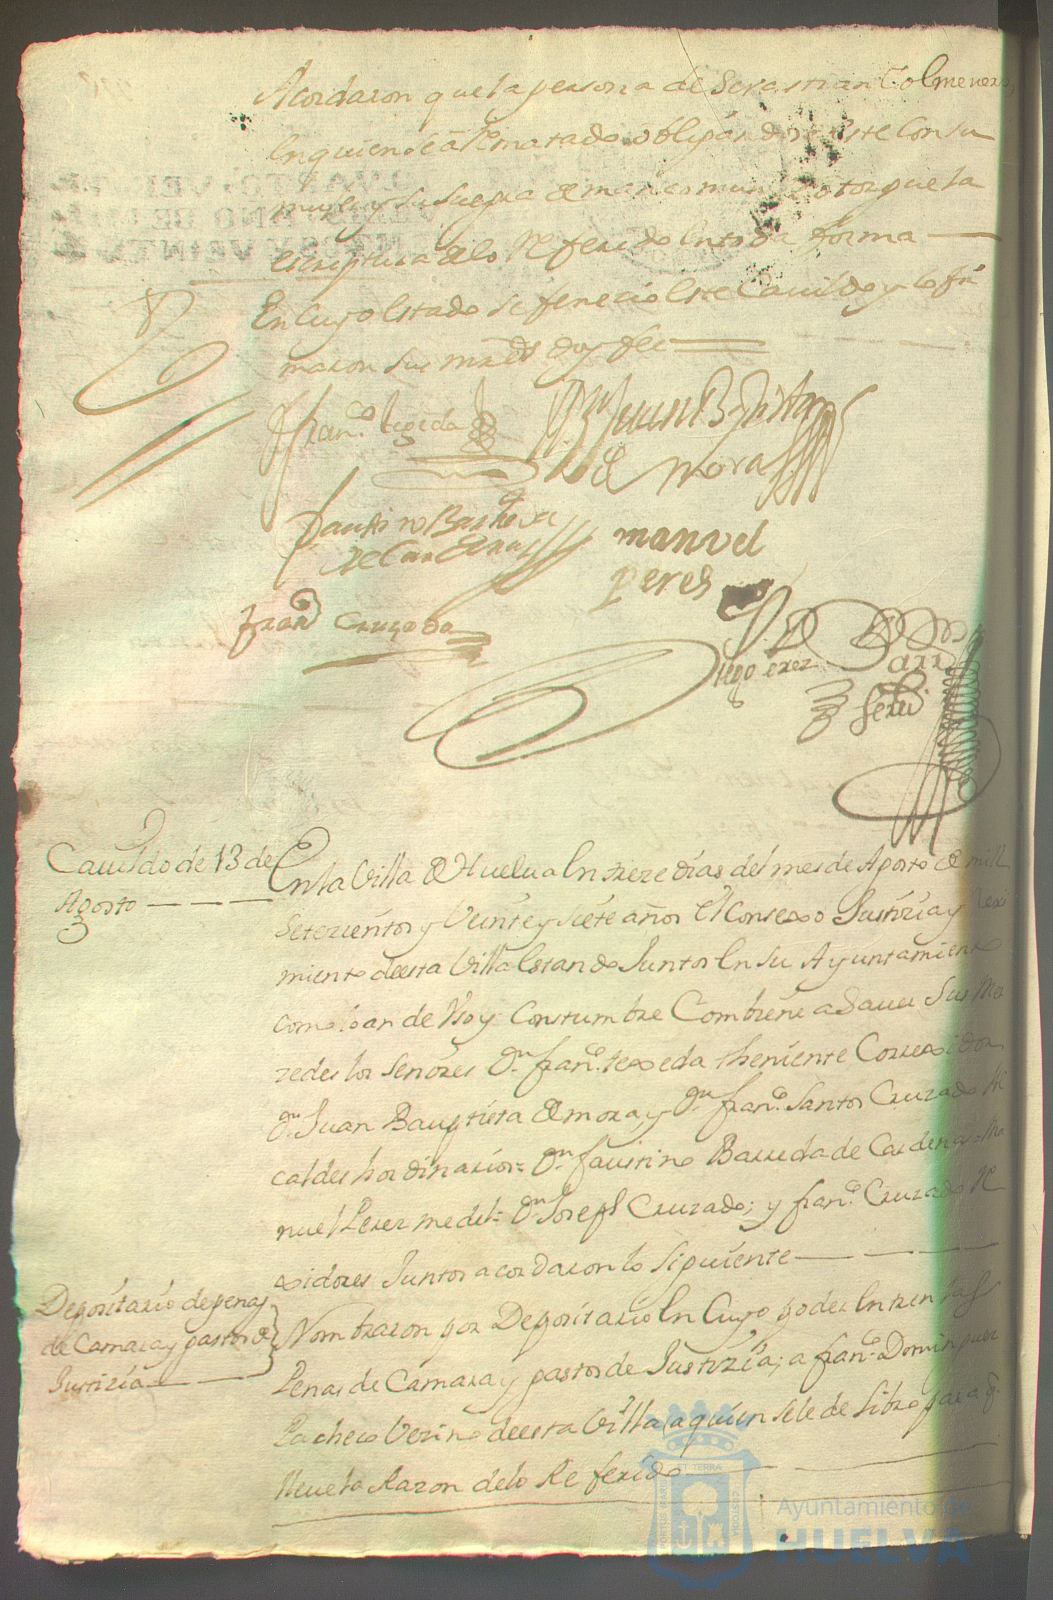 Acordaron que la persona de Sevastian Colmenero,
en quien se â Rematado obligandose este Con su
muger y su suegra de mancomun otorgue la
escriptura de lo Referido en toda forma
En Cuyo estado se fenecio este Cavildo y lo fir
maron sus mrds doy fee
Fran.co texeda
Dn Juan Baptista
de Mora
Faustino Barreda
de Cardenas
manuel
peres
Fran.co Cruzado
Diego Perez
Cavildo de 13 de
Agosto
En la Villa de Huelva en treze dias del mes de Agosto de mill
Setezientos y Veinte y siete años el Consexo Justizia y Rexi
miento de esta Villa estando Juntos en su Ayuntamiento
como lo an de Vso y Constumbre Combiene a Saver Sus Mer
zedes los Señores Dn fran.co texeda theniente Correxidor
Dn Juan Bauptista de mora, y Dn fran.co Santos Cruzado Al
caldes hordinarios= Dn faustino Barreda de Cardenas= Ma
nuel Perez medel= Dn Joseph Cruzado; y fran.co Cruzado Re
xidores Juntos acordaron lo Siguiente
Depositario de penas
de Camara y gastos de
Justizia
Nombraron por Depositario en Cuyo poder entren las
Penas de Camara y gastos de Justizia; a fran.co Dominguez
Pacheco Vezino de esta Villa a quien se le de Libro para q
lleve la Razon de lo Referido
Ayuntamiento de
HUELVA